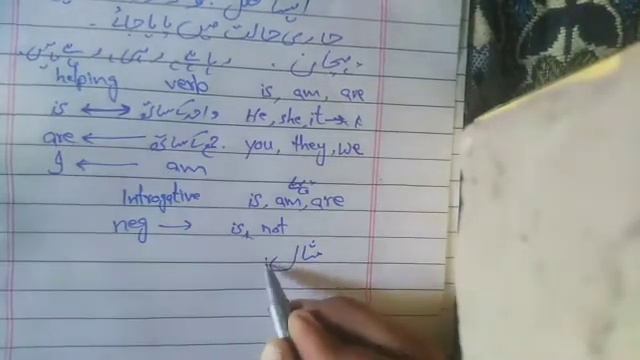 جاری حالت میں پایا جائے۔
پہچان۔ رہا ہے، رہی، رہے ہیں،
helping verb is, am, are
is ↔ واحد کے ساتھ He, she, it →
are ← جمع کے ساتھ you, they, we
I ← am
Introgative is, am, are
neg → is, not
مثال